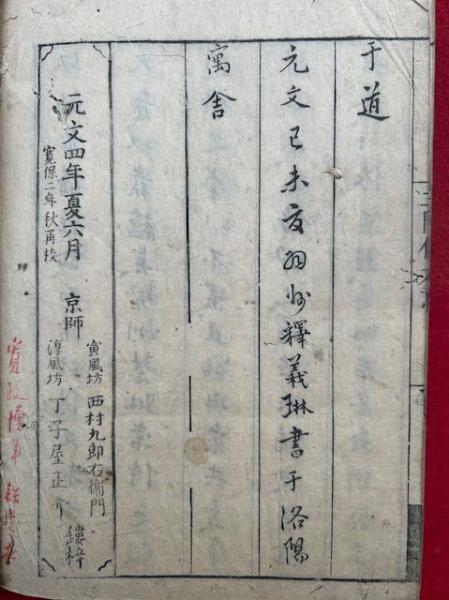 于道
元文己未夏羽州釋義琳書于洛陽
寓舍
元文四年夏六月
寛保二年秋再校
京師
寅風坊 西村九郎右衛門
淳風坊 丁子屋正介
鏤梓